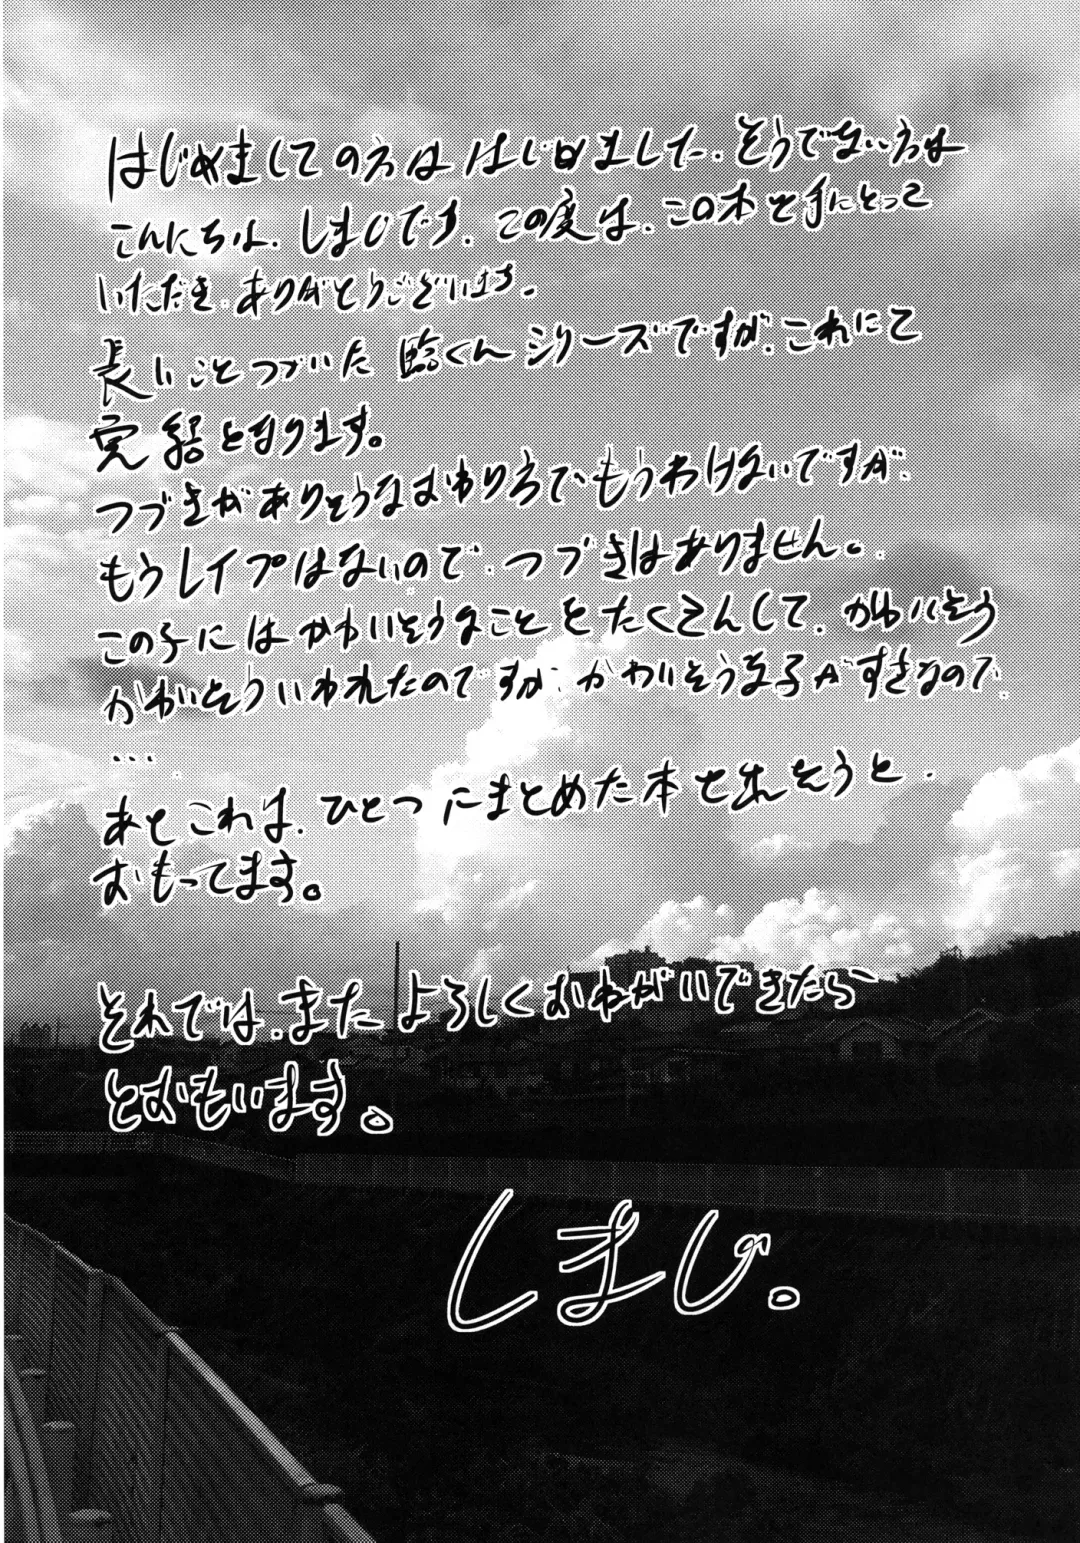 はじめましての方ははじめました、そうでない方は
こんにちは、しまじです、この度は、この本を手にとって
いただき、ありがとうございます。
長いことつづいた臨くんシリーズですが、これにて
完結となります。
つづきがありそうなおわり方でもうわけないですが、
もうレイプはないので、つづきはありません。
この子にはかわいそうなことをたくさんして、かわいそう
かわいそういわれたのですが、かわいそうな子がすきなので
...
あとこれは、ひとつにまとめた本を出そうと、
おもってます。
それでは、またよろしくおねがいできたら
とおもいます。
しまじ。